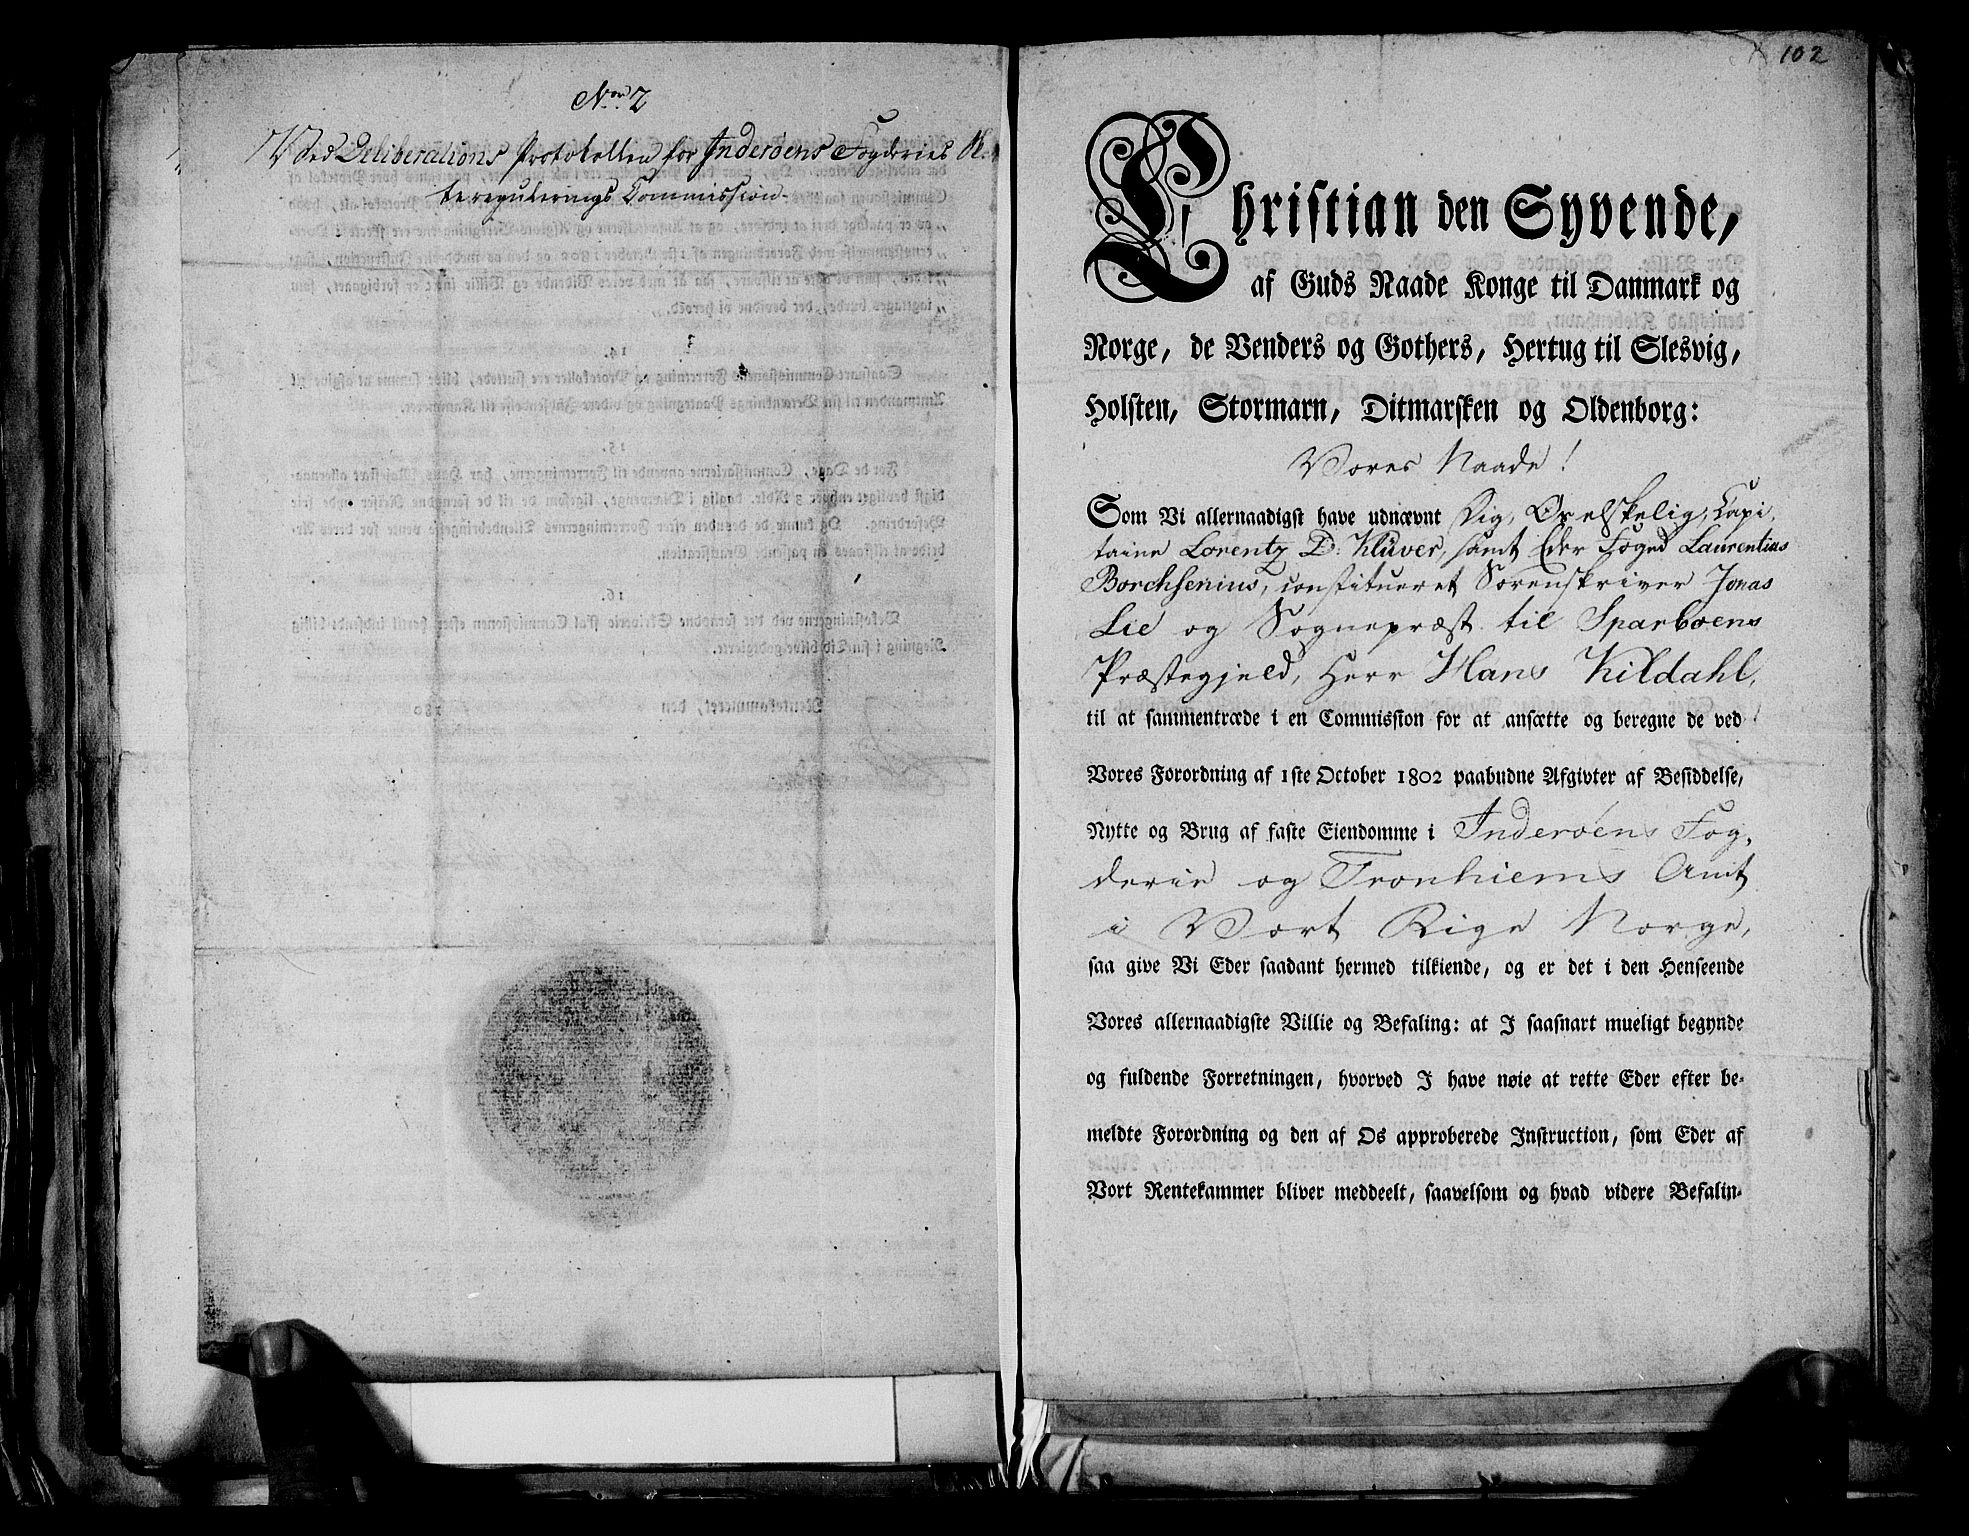 No. 2
Ved Deliberations Protokollen for Inderöens Fogderies
teregulerings Commission
102
Christian den Syvende,
af Guds Naade Konge til Danmark og
Norge, de Venders og Gothers, Hertug til Slesvig,
Holsten, Stormarn, Ditmarsken og Oldenborg:
Vores Naade!
Som Vi allernaadigst have udnævnt Dig, Os elskelig, Capi-
taine Lorentz D: Klüver, samt Eder Foged Laurentius
Borchsenius, constitueret Sorenskriver Jonas
Lie og Sognepræst til Sparboens
Præstegjeld, Herr Hans Kildahl,
til at sammentræde i en Commission for at ansætte og beregne de ved
Vores Forordning af 1ste October 1802 paabudne Afgivter af Besiddelse,
Nytte og Brug af faste Eiendomme i Inderöens Fog-
derie og Tronhiems Amt
i Vort Rige Norge,
saa give Vi Eder saadant hermed tilkiende, og er det i den Henseende
Vores allernaadigste Villie og Befaling: at I saasnart mueligt begynde
og fuldende Forretningen, hvorved I have nøie at rette Eder efter be-
meldte Forordning og den af Os approberede Instruction, som Eder af
Vort Rentekammer bliver meddeelt, saavelsom og hvad videre Befalin-